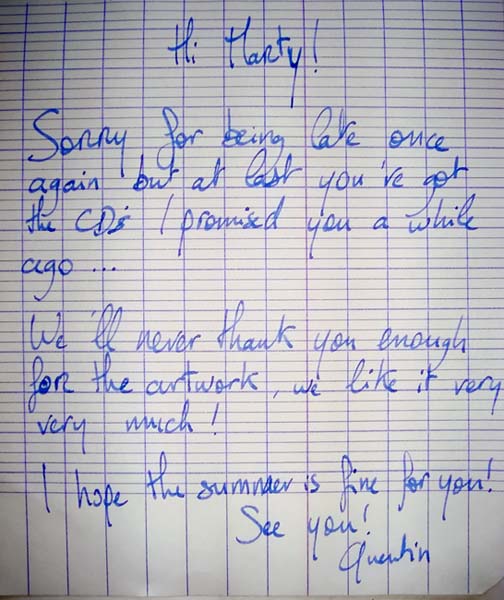 Hi Marty!
Sorry for being late once
again but at last you've got
the CDs I promised you a while
ago ...
We'll never thank you enough
for the artwork, we like it very
very much!
I hope the summer is fine for you!
See you!
Quentin